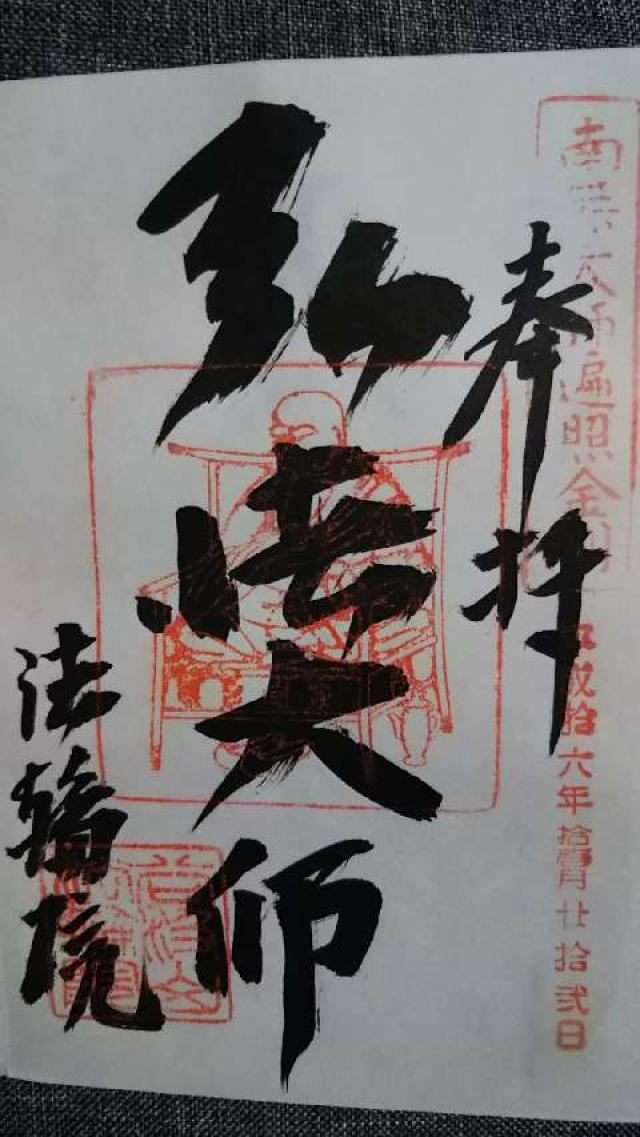 南無大師遍照金剛
拾六年拾壹月廿拾弐日
奉拝
弘法大師
法輪院